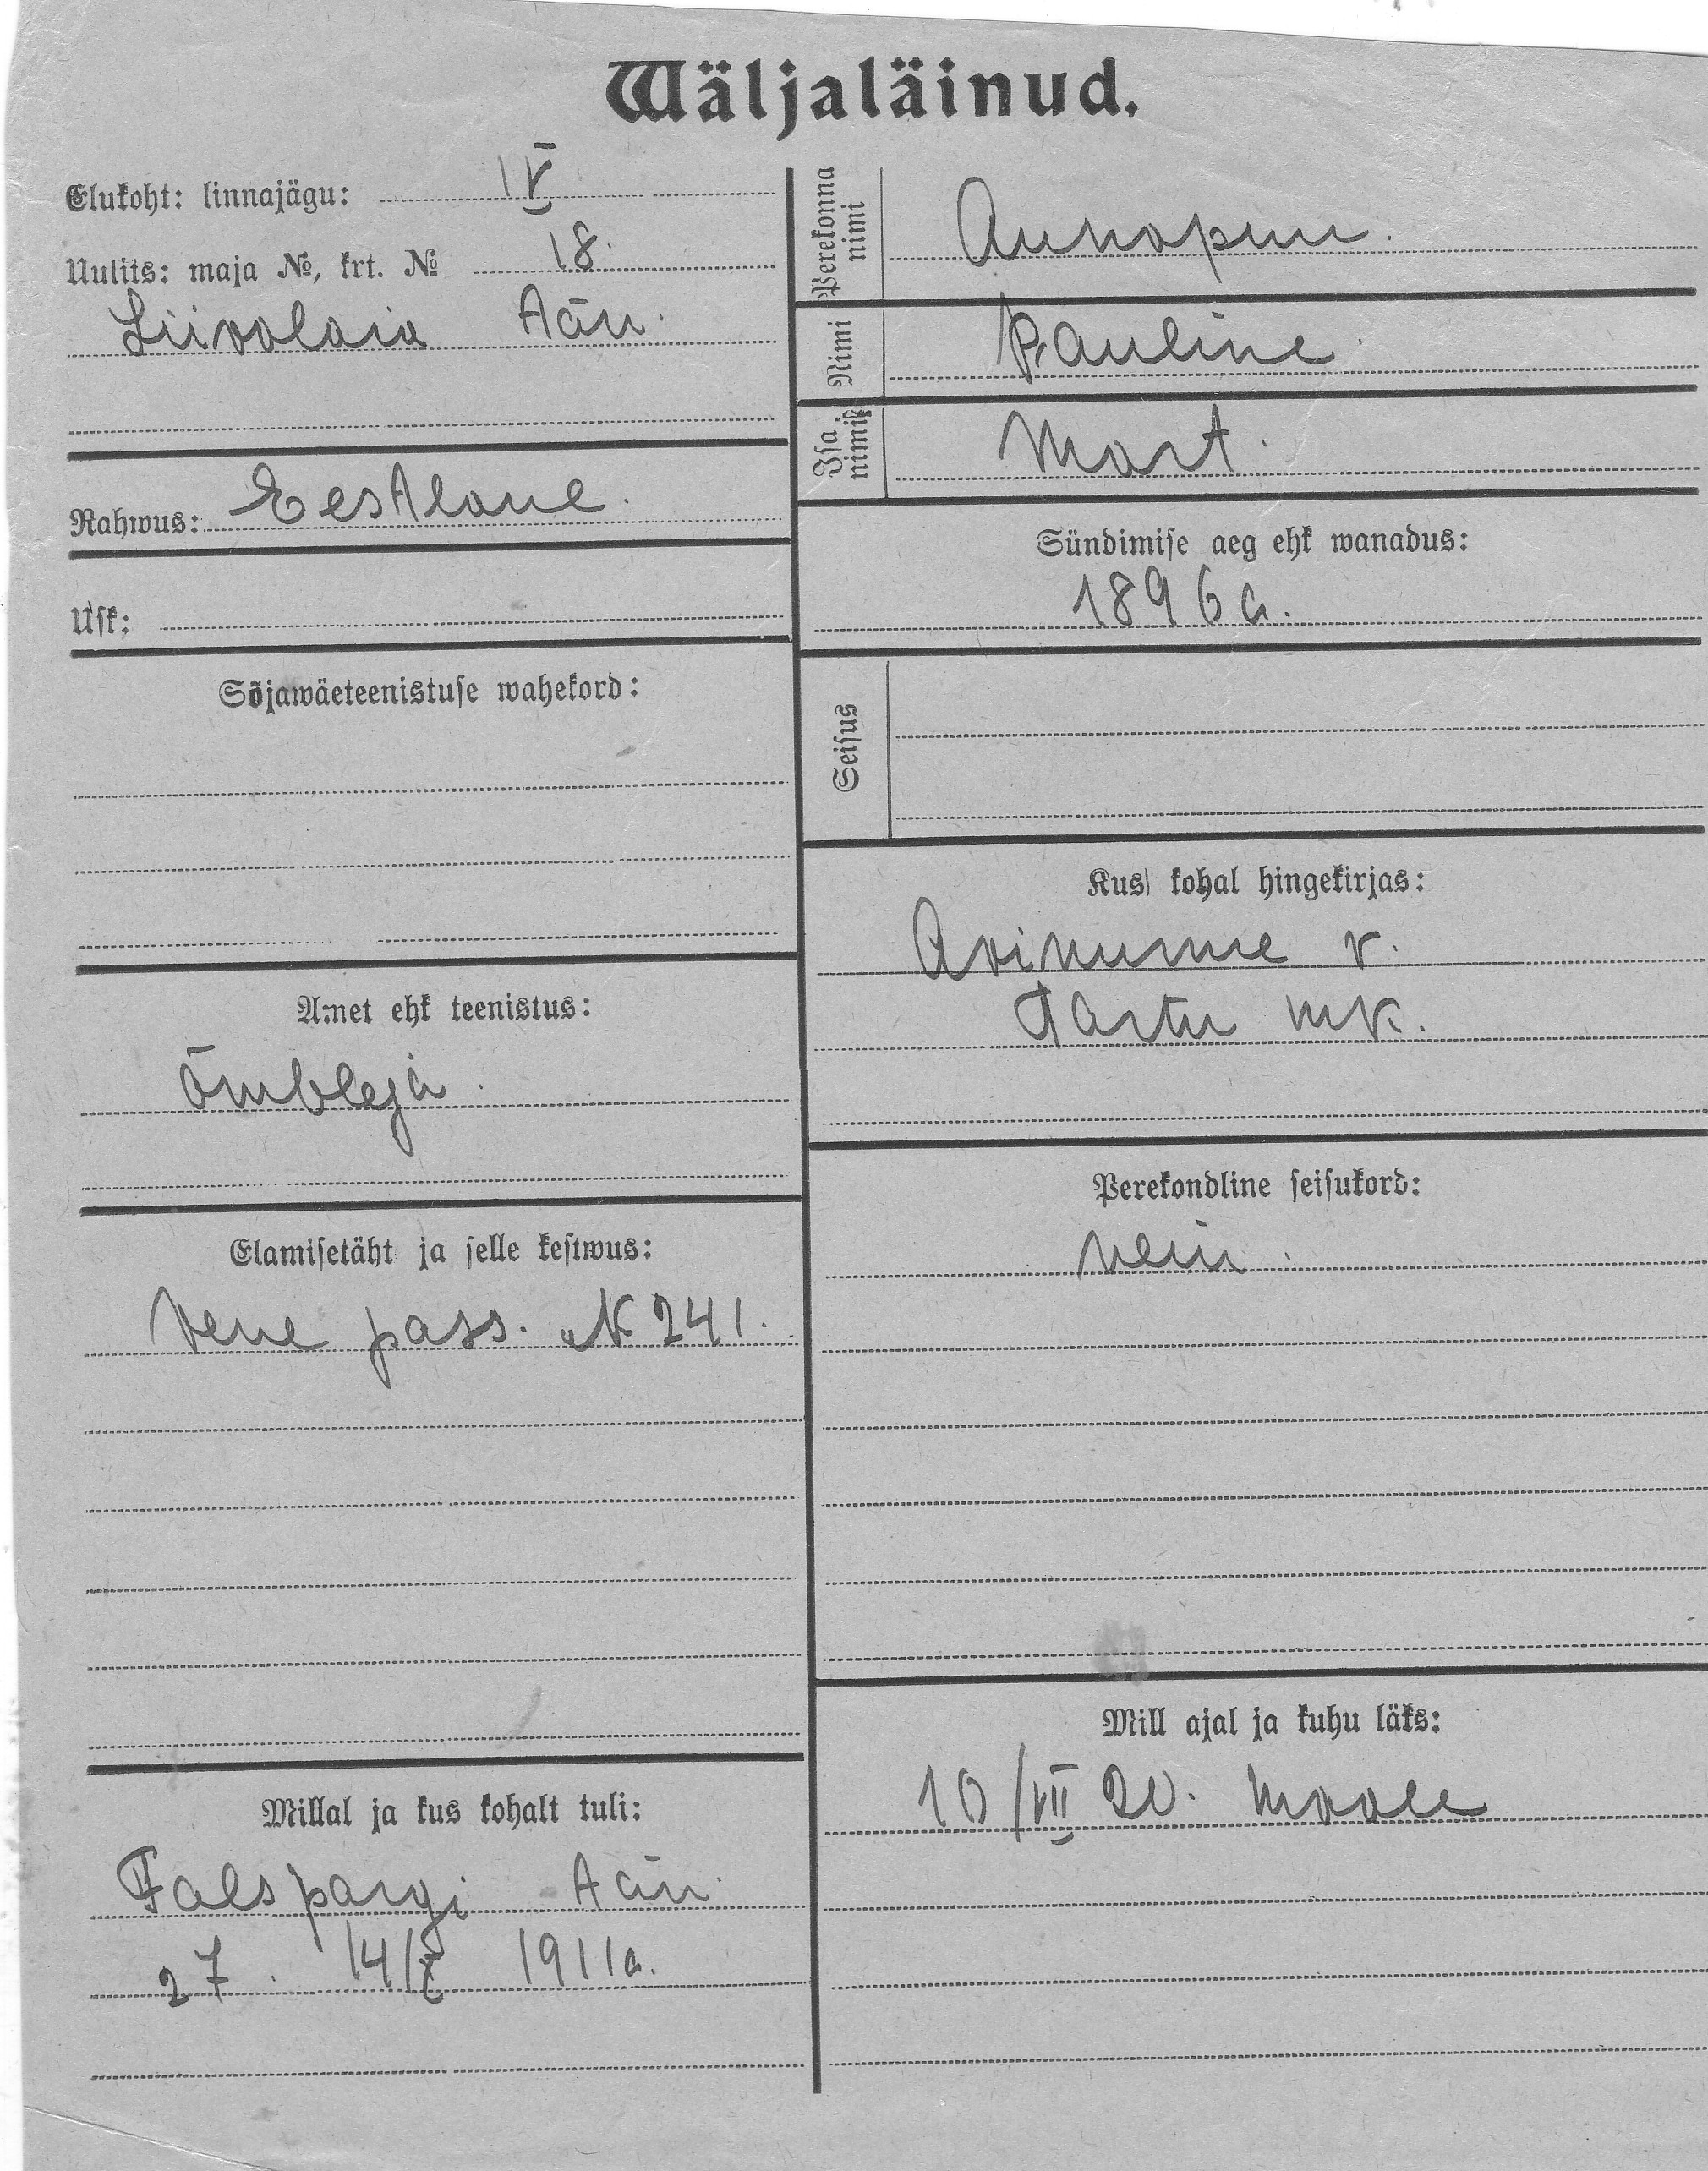 Wäljaläinud.
Elukoht: linnajägu: IV
Uulits: maja №, krt. № 18.
Liivalaia tän.
Rahwus: Eestlane.
Usk:
Sõjawäeteenistuse wahekord:
Amet ehk teenistus:
Õmbleja.
Elamisetäht ja selle kestwus:
Vene pass. № 241.
Millal ja kus kohalt tuli:
Falspargi tän.
27. 14/X 1911a.
Perekonna nimi Annapuu.
Nimi Pauline.
Isa nimi Mart.
Sündimise aeg ehk wanadus:
1896 a.
Seisus
Kus kohal hingekirjas:
Avinurme v.
Tartu mk.
Perekondline seisukord:
neiu.
Mill ajal ja kuhu läks:
10/VII 20. maale